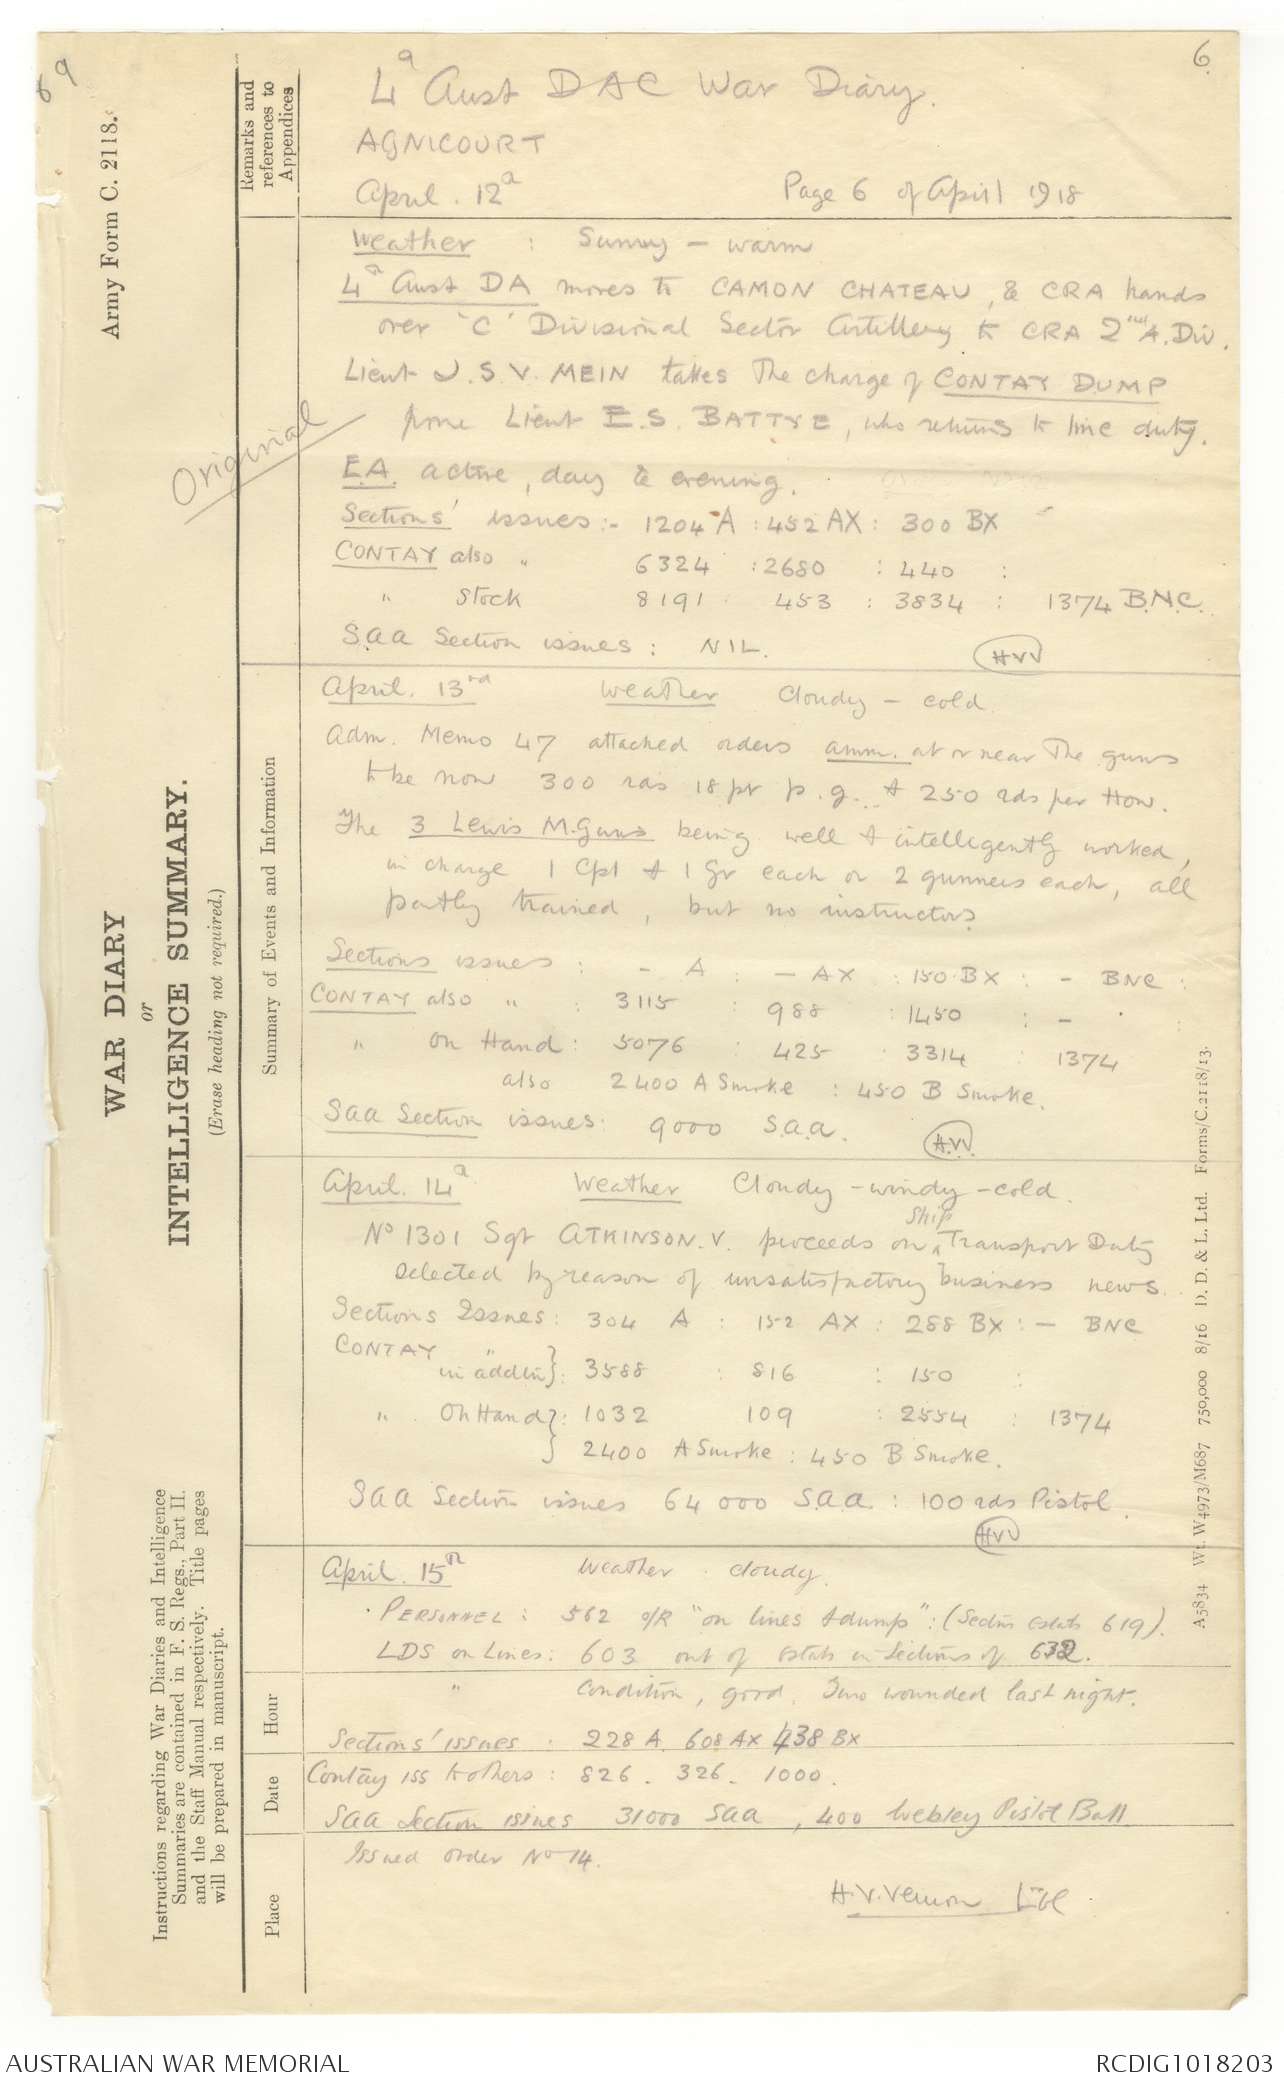 6
4th Aust DAC War Diary.
AGNICOURT
April. 12th Page 6 of April 1918
Weather : Sunny - warm
4th Aust DA moves to CAMON CHATEAU, & CRA hands
over 'C' Divisional Sector Artillery to CRA 2nd A. Div.
Lieut J.S.V. MEIN takes the charge of CONTAY DUMP
from Lieut E.S. BATTYE, who returns to line duty.
Original
E.A. active, day & evening.
Sections' issues:- 1204 A : 452 AX : 300 BX
CONTAY also " 6324 : 2680 : 440 :
" Stock 8191 453 : 3834 : 1374 B.N.C.
S.a.a Section issues : NIL.
HVV
April. 13rd Weather Cloudy - cold
Adm. Memo 47 attached orders amm. at or near the guns
to be now 300 rds 18 pr p.g. & 250 rds per How.
The 3 Lewis M.Guns being well & intelligently worked,
in charge 1 Cpl & 1 Gr each or 2 gunners each, all
partly trained, but no instructors
Sections issues : - A : - AX : 150 BX : - BNC :
CONTAY also " : 3115 : 988 : 1450 : -
" On Hand : 5076 : 425 3314 : 1374
also 2400 A Smoke : 450 B Smoke.
SAA Section issues: 9000 S.a.a.
H.VV.
April. 14th Weather Cloudy - windy - cold.
No 1301 Sgt ATKINSON. V. proceeds on ^Ship Transport Duty
selected by reason of unsatisfactory business news.
Sections Issues : 304 A : 152 AX : 288 BX : - BNC
CONTAY "
in addtn}: 3588 : 816 : 150 :
" On Hand}: 1032 109 : 2554 : 1374
} 2400 A Smoke : 450 B Smoke.
SAA Section issues 64 000 S.a.a. : 100 rds Pistol.
HVV
April. 15th Weather . cloudy.
PERSONNEL : 562 o/R "on lines & dump" : (Sectns estabs 619).
LDS on Lines : 603 out of estab in Sections of 632.
" Condition, good. Two wounded last night.
Sections' issues . 228 A. 608 AX 438 BX
Contay iss to others : 826 . 326 . 1000.
SAA Section issues 31000 SAA, 400 Webley Pistol Ball
Issued order No 14.
H.V. Vernon Lt Col
Army Form C. 2118.
WAR DIARY
or
INTELLIGENCE SUMMARY.
(Erase heading not required.)
Instructions regarding War Diaries and Intelligence
Summaries are contained in F. S. Regs., Part II.
and the Staff Manual respectively. Title pages
will be prepared in manuscript.
Remarks and
references to
Appendices
Summary of Events and Information
Hour
Date
Place
A5834 Wt. W4973/M687 750,000 8/16 D. D. & L. Ltd. Forms/C.2118/13.
AUSTRALIAN WAR MEMORIAL
RCDIG1018203